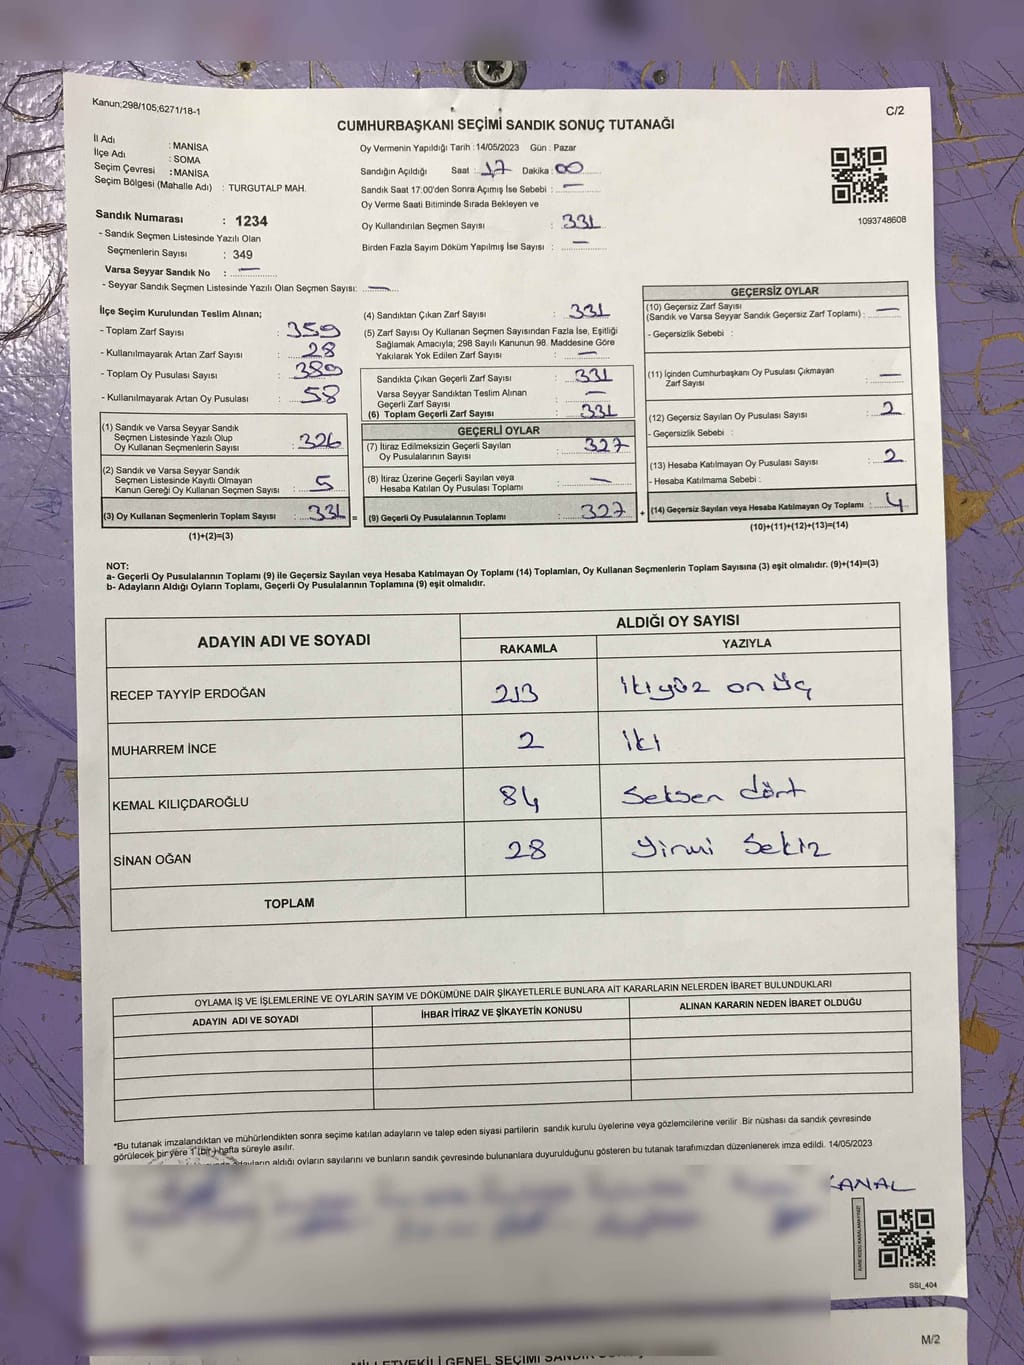 Kanun;298/105;6271/18-1
C/2
CUMHURBAŞKANI SEÇİMİ SANDIK SONUÇ TUTANAĞI
İl Adı : MANİSA
İlçe Adı : SOMA
Seçim Çevresi : MANİSA
Seçim Bölgesi (Mahalle Adı) : TURGUTALP MAH.
Sandık Numarası : 1234
- Sandık Seçmen Listesinde Yazılı Olan
Seçmenlerin Sayısı : 349
Varsa Seyyar Sandık No : —
- Seyyar Sandık Seçmen Listesinde Yazılı Olan Seçmen Sayısı: —
Oy Vermenin Yapıldığı Tarih : 14/05/2023 Gün : Pazar
Sandığın Açıldığı Saat : 17 Dakika : 00
Sandık Saat 17:00'den Sonra Açımış İse Sebebi : —
Oy Verme Saati Bitiminde Sırada Bekleyen ve
Oy Kullandırılan Seçmen Sayısı : 331
Birden Fazla Sayım Döküm Yapılmış İse Sayısı : —
1093748608
İlçe Seçim Kurulundan Teslim Alınan;
- Toplam Zarf Sayısı : 359
- Kullanılmayarak Artan Zarf Sayısı : 28
- Toplam Oy Pusulası Sayısı : 389
- Kullanılmayarak Artan Oy Pusulası : 58
(1) Sandık ve Varsa Seyyar Sandık
Seçmen Listesinde Yazılı Olup
Oy Kullanan Seçmenlerin Sayısı : 326
(2) Sandık ve Varsa Seyyar Sandık
Seçmen Listesinde Kayıtlı Olmayan
Kanun Gereği Oy Kullanan Seçmen Sayısı : 5
(3) Oy Kullanan Seçmenlerin Toplam Sayısı : 331 =
(1)+(2)=(3)
(4) Sandıktan Çıkan Zarf Sayısı : 331
(5) Zarf Sayısı Oy Kullanan Seçmen Sayısından Fazla İse, Eşitliği
Sağlamak Amacıyla; 298 Sayılı Kanunun 98. Maddesine Göre
Yakılarak Yok Edilen Zarf Sayısı : —
Sandıkta Çıkan Geçerli Zarf Sayısı : 331
Varsa Seyyar Sandıktan Teslim Alınan
Geçerli Zarf Sayısı : —
(6) Toplam Geçerli Zarf Sayısı : 331
GEÇERLİ OYLAR
(7) İtiraz Edilmeksizin Geçerli Sayılan
Oy Pusulalarının Sayısı : 327
(8) İtiraz Üzerine Geçerli Sayılan veya
Hesaba Katılan Oy Pusulası Toplamı : —
(9) Geçerli Oy Pusulalarının Toplamı : 327 +
GEÇERSİZ OYLAR
(10) Geçersiz Zarf Sayısı
(Sandık ve Varsa Seyyar Sandık Geçersiz Zarf Toplamı) : —
- Geçersizlik Sebebi :
(11) İçinden Cumhurbaşkanı Oy Pusulası Çıkmayan
Zarf Sayısı : —
(12) Geçersiz Sayılan Oy Pusulası Sayısı : 2
- Geçersizlik Sebebi :
(13) Hesaba Katılmayan Oy Pusulası Sayısı : 2
- Hesaba Katılmama Sebebi :
(14) Geçersiz Sayılan veya Hesaba Katılmayan Oy Toplamı : 4
(10)+(11)+(12)+(13)=(14)
NOT:
a- Geçerli Oy Pusulalarının Toplamı (9) ile Geçersiz Sayılan veya Hesaba Katılmayan Oy Toplamı (14) Toplamları, Oy Kullanan Seçmenlerin Toplam Sayısına (3) eşit olmalıdır. (9)+(14)=(3)
b- Adayların Aldığı Oyların Toplamı, Geçerli Oy Pusulalarının Toplamına (9) eşit olmalıdır.
ADAYIN ADI VE SOYADI
ALDIĞI OY SAYISI
RAKAMLA YAZIYLA
RECEP TAYYİP ERDOĞAN 213 ikiyüz onüç
MUHARREM İNCE 2 iki
KEMAL KILIÇDAROĞLU 84 Seksen dört
SİNAN OĞAN 28 yirmi Sekiz
TOPLAM
OYLAMA İŞ VE İŞLEMLERİNE VE OYLARIN SAYIM VE DÖKÜMÜNE DAİR ŞİKAYETLERLE BUNLARA AİT KARARLARIN NELERDEN İBARET BULUNDUKLARI
ADAYIN ADI VE SOYADI İHBAR İTİRAZ VE ŞİKAYETİN KONUSU ALINAN KARARIN NEDEN İBARET OLDUĞU
*Bu tutanak imzalandıktan ve mühürlendikten sonra seçime katılan adayların ve talep eden siyasi partilerin sandık kurulu üyelerine veya gözlemcilerine verilir .Bir nüshası da sandık çevresinde
görülecek bir yere 1 (bir) hafta süreyle asılır.
aldığı oyların sayılarını ve bunların sandık çevresinde bulunanlara duyurulduğunu gösteren bu tutanak tarafımızdan düzenlenerek imza edildi. 14/05/2023
KANAL
SSI_404
M/2
MİLLETVEKİLİ GENEL SEÇİMİ